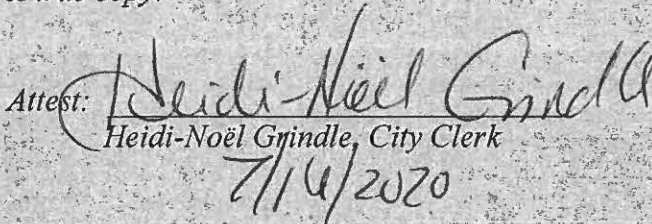 true copy.
Attest: Heidi-Noël Grindle
Heidi-Noël Grindle, City Clerk
7/16/2020